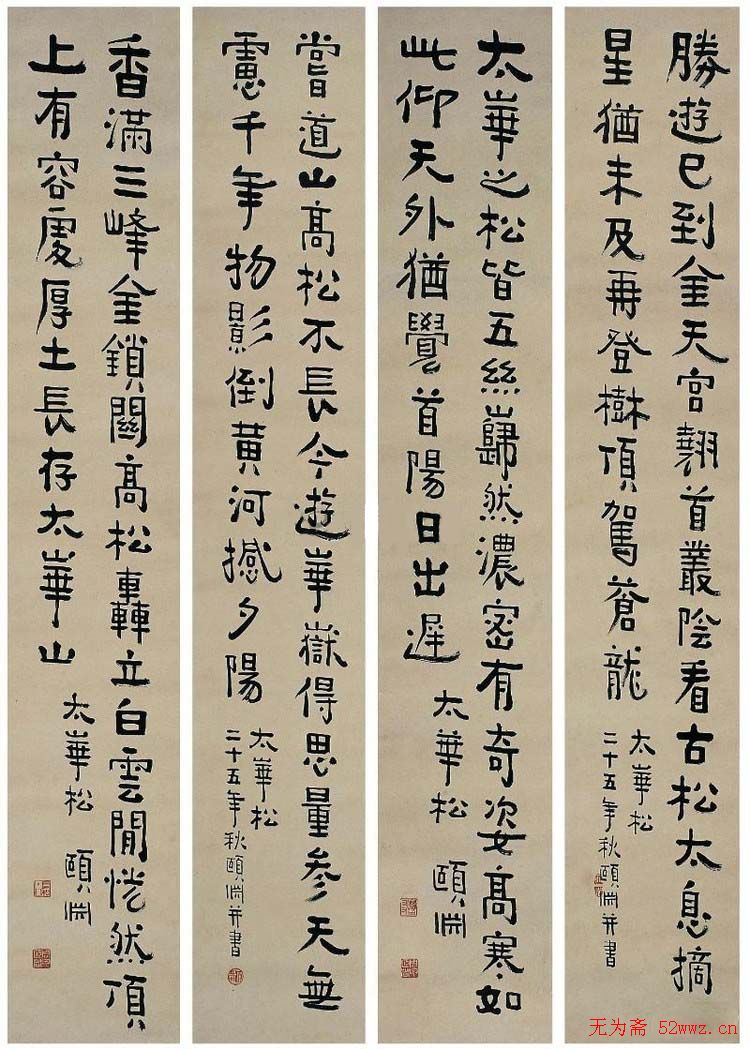 勝遊已到金天宮翹首叢陰看古松太息摘
星猶未及再登樹頂駕蒼龍
太華松
二十五年秋頤淵并書
太華之松皆五絲巋然濃密有奇姿高寒如
此仰天外猶覺首陽日出遲
太華松
頤淵
嘗道山高松不長今遊華嶽得思量參天無
慮千年物影倒黃河撼夕陽
太華松
二十五年秋頤淵并書
香滿三峰金鎖關高松轟立白雲閒恍然頂
上有容處厚土長存太華山
太華松
頤淵
无为斋 52wwz.cn